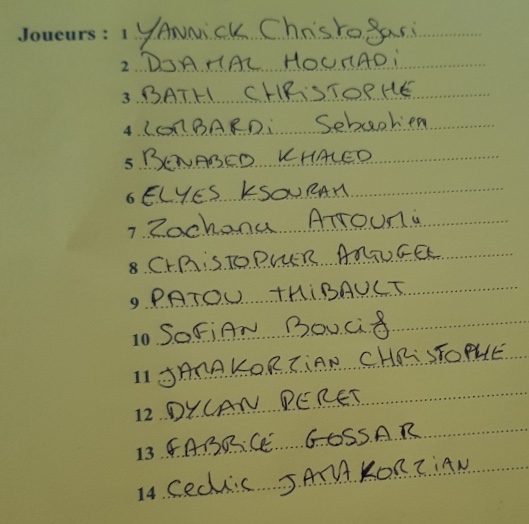 Joueurs : 1 YANNICK Christofari
2 DJAMAL HOUMADi
3 BATH CHRiSTOPHE
4 LOMBARDi Sebastien
5 BENABED KHALED
6 ELYES KSOURAH
7 Zacharia ATTOUMi
8 CHRiSTOPHER ARTUGEL
9 PATOU THIBAULT
10 SOFiAN Boucif
11 JAMAKORZiAN CHRiSTOPHE
12 DYLAN PERET
13 FABRiCE GOSSAR
14 Cedric JAMAKORZiAN